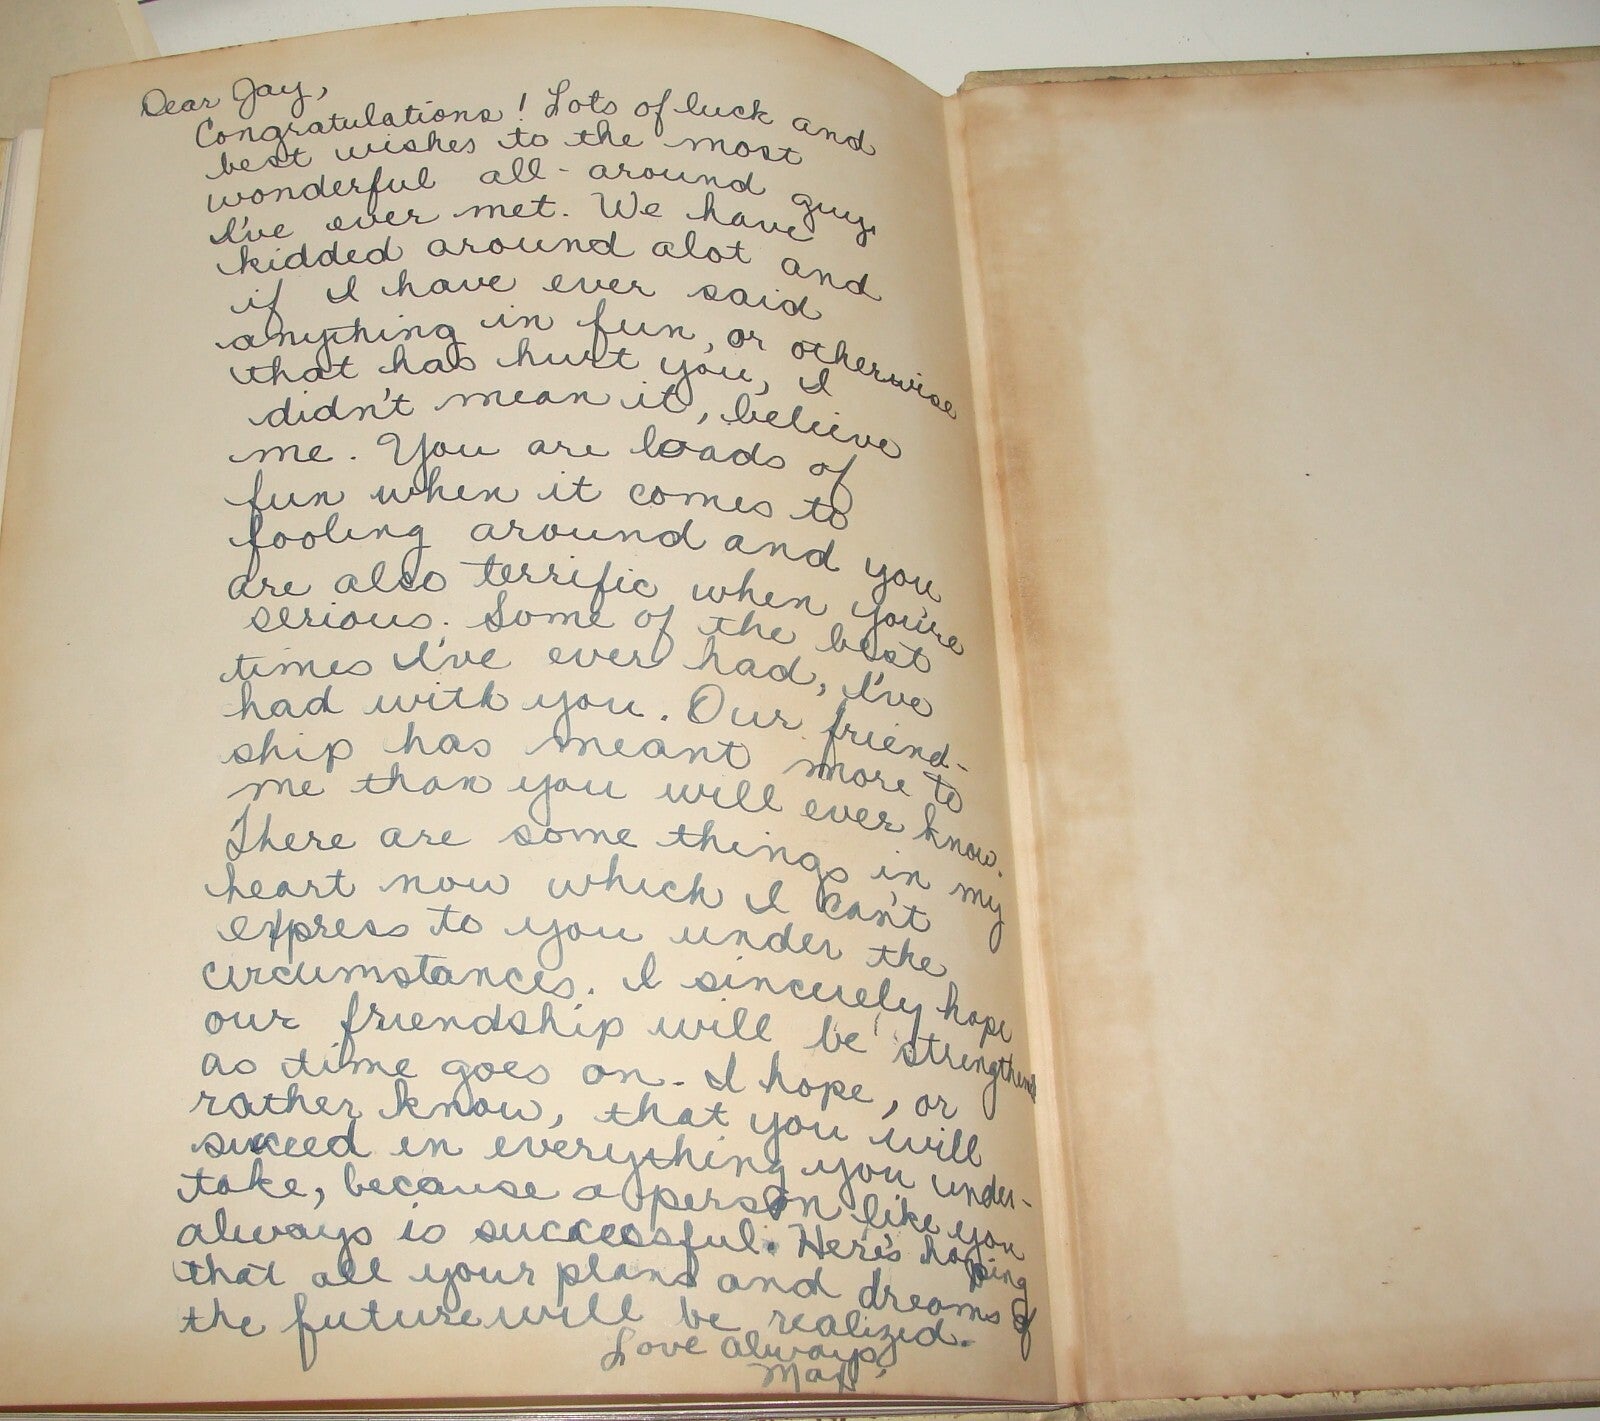 Dear Jay,
Congratulations! Lots of luck and
best wishes to the most
wonderful all-around guy
I've ever met. We have
kidded around alot and
if I have ever said
anything in fun, or otherwise
that has hurt you, I
didn't mean it, believe
me. You are loads of
fun when it comes to
fooling around and you
are also terrific when you're
serious. Some of the best
times I've ever had, I've
had with you. Our friend-
ship has meant more to
me than you will ever know.
There are some things in my
heart now which I can't
express to you under the
circumstances. I sincerely hope
our friendship will be
as time goes on. I hope, or
rather know, that you will
succeed in everything you under-
take, because a person like you
always is successful. Here's hopping
that all your plans and dreams of
the future will be realized.
Love always,